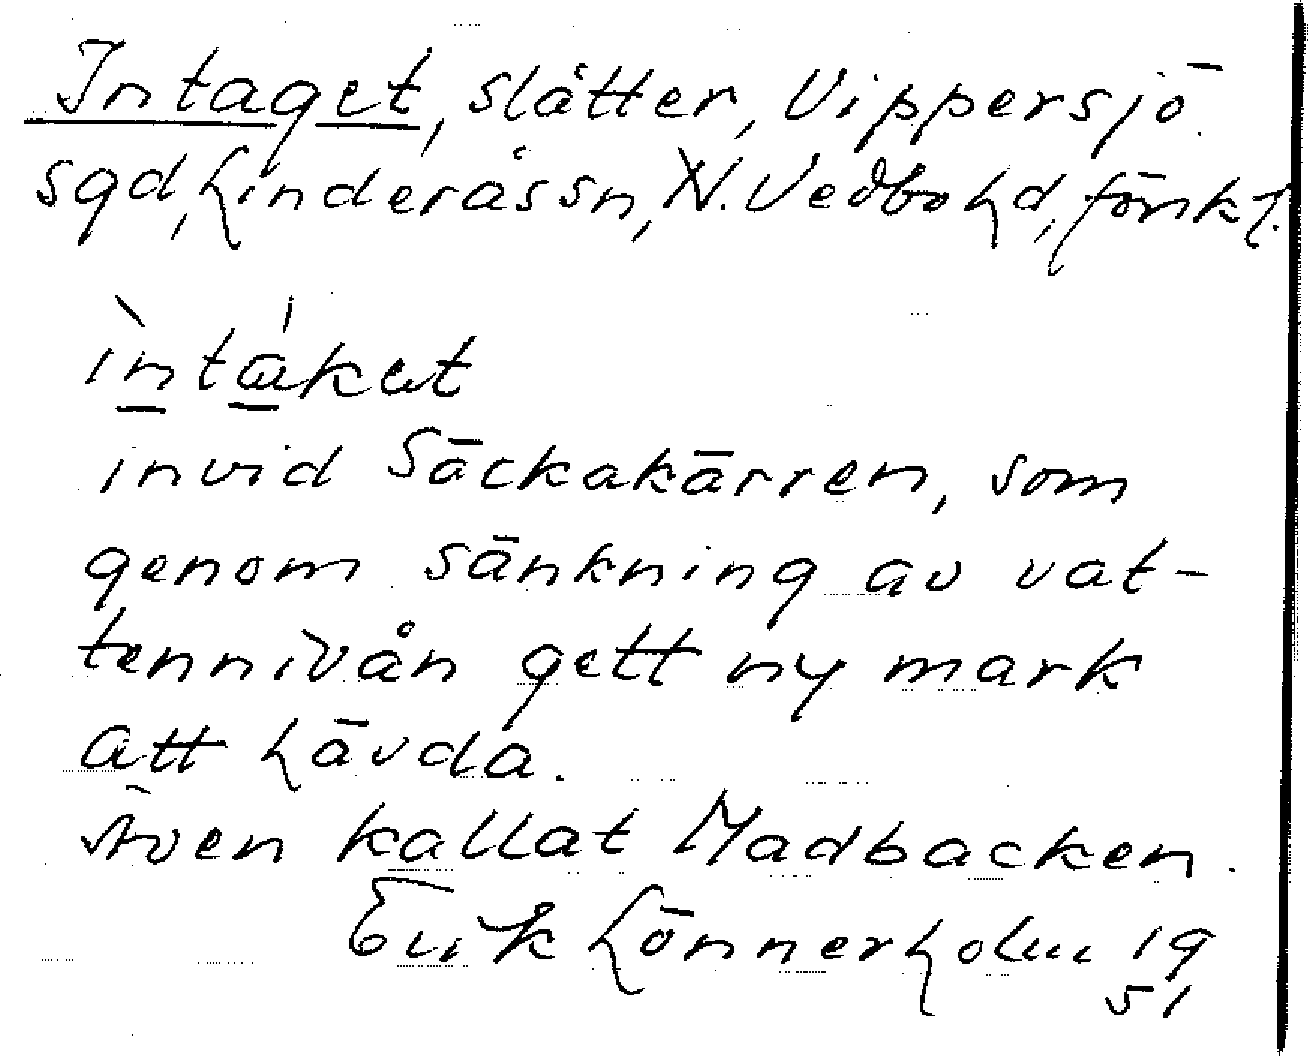 Intaget, slåtter, Vippersjö
sgd, Linderås sn, N. Vedbo hd, Jönk l.
ìntákat
invid Säckakärren, som
genom sänkning av vat-
tennivån gett ny mark
att hävda.
Även kallat Madbacken.
Erik Lönnerholm 19
51